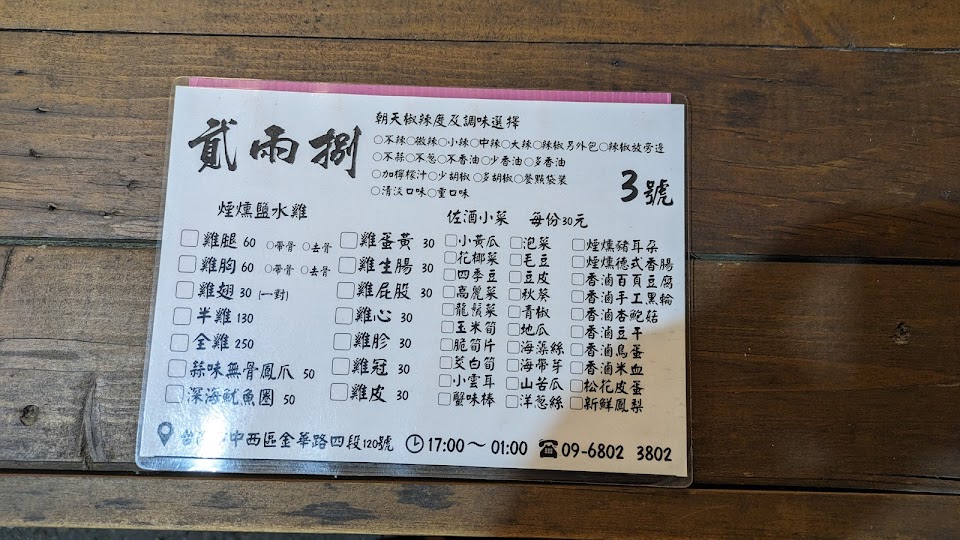 貳兩捌
朝天椒辣度及調味選擇
○不辣○微辣○小辣○中辣○大辣○辣椒另外包○辣椒放旁邊
○不蒜○不蔥○不香油○少香油○多香油
○加檸檬汁○少胡椒○多胡椒○餐點袋裝
○清淡口味○重口味
3號
煙燻鹽水雞
□雞腿 60 ○帶骨 ○去骨
□雞胸 60 ○帶骨 ○去骨
□雞翅 30 (一對)
□半雞 130
□全雞 250
□蒜味無骨鳳爪 50
□深海魷魚圈 50
□雞蛋黃 30
□雞生腸 30
□雞屁股 30
□雞心 30
□雞胗 30
□雞冠 30
□雞皮 30
佐酒小菜 每份30元
□小黃瓜
□花椰菜
□四季豆
□高麗菜
□龍鬚菜
□玉米筍
□脆筍片
□茭白筍
□小雲耳
□蟹味棒
□泡菜
□毛豆
□豆皮
□秋葵
□青椒
□地瓜
□海藻絲
□海帶芽
□山苦瓜
□洋蔥絲
□煙燻豬耳朵
□煙燻德式香腸
□香滷百頁豆腐
□香滷手工黑輪
□香滷杏鮑菇
□香滷豆干
□香滷鳥蛋
□香滷米血
□松花皮蛋
□新鮮鳳梨
中西區金華路四段120號
17:00～01:00
09-6802 3802